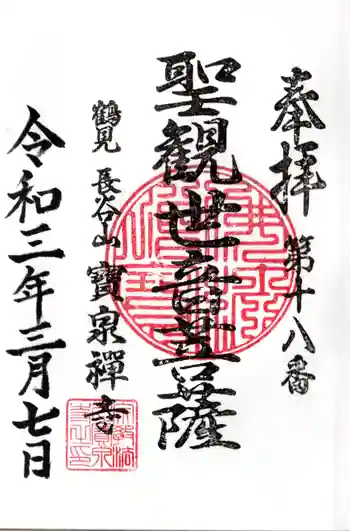 奉拝 第十八番
聖観世音菩薩
鶴見 長谷山 寶泉禪寺
令和三年三月七日